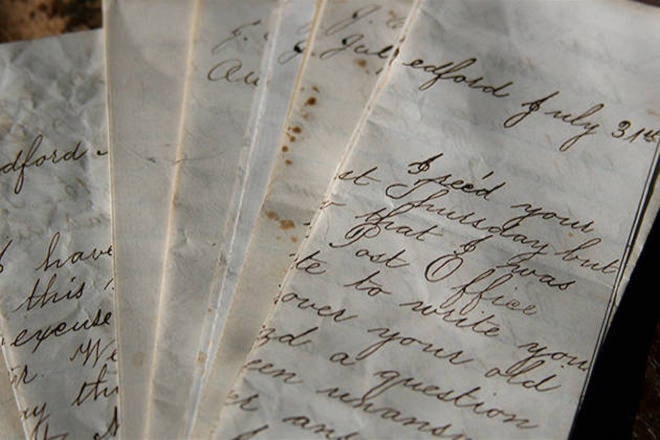 dford
I have
this
excuse
r. We
ay th
J.
Au
J.
Jul
edford July 31st
I rec'd your
st Thursday but
that I was
Post Office
te to write you
over your old
nd a question
een unans
er an